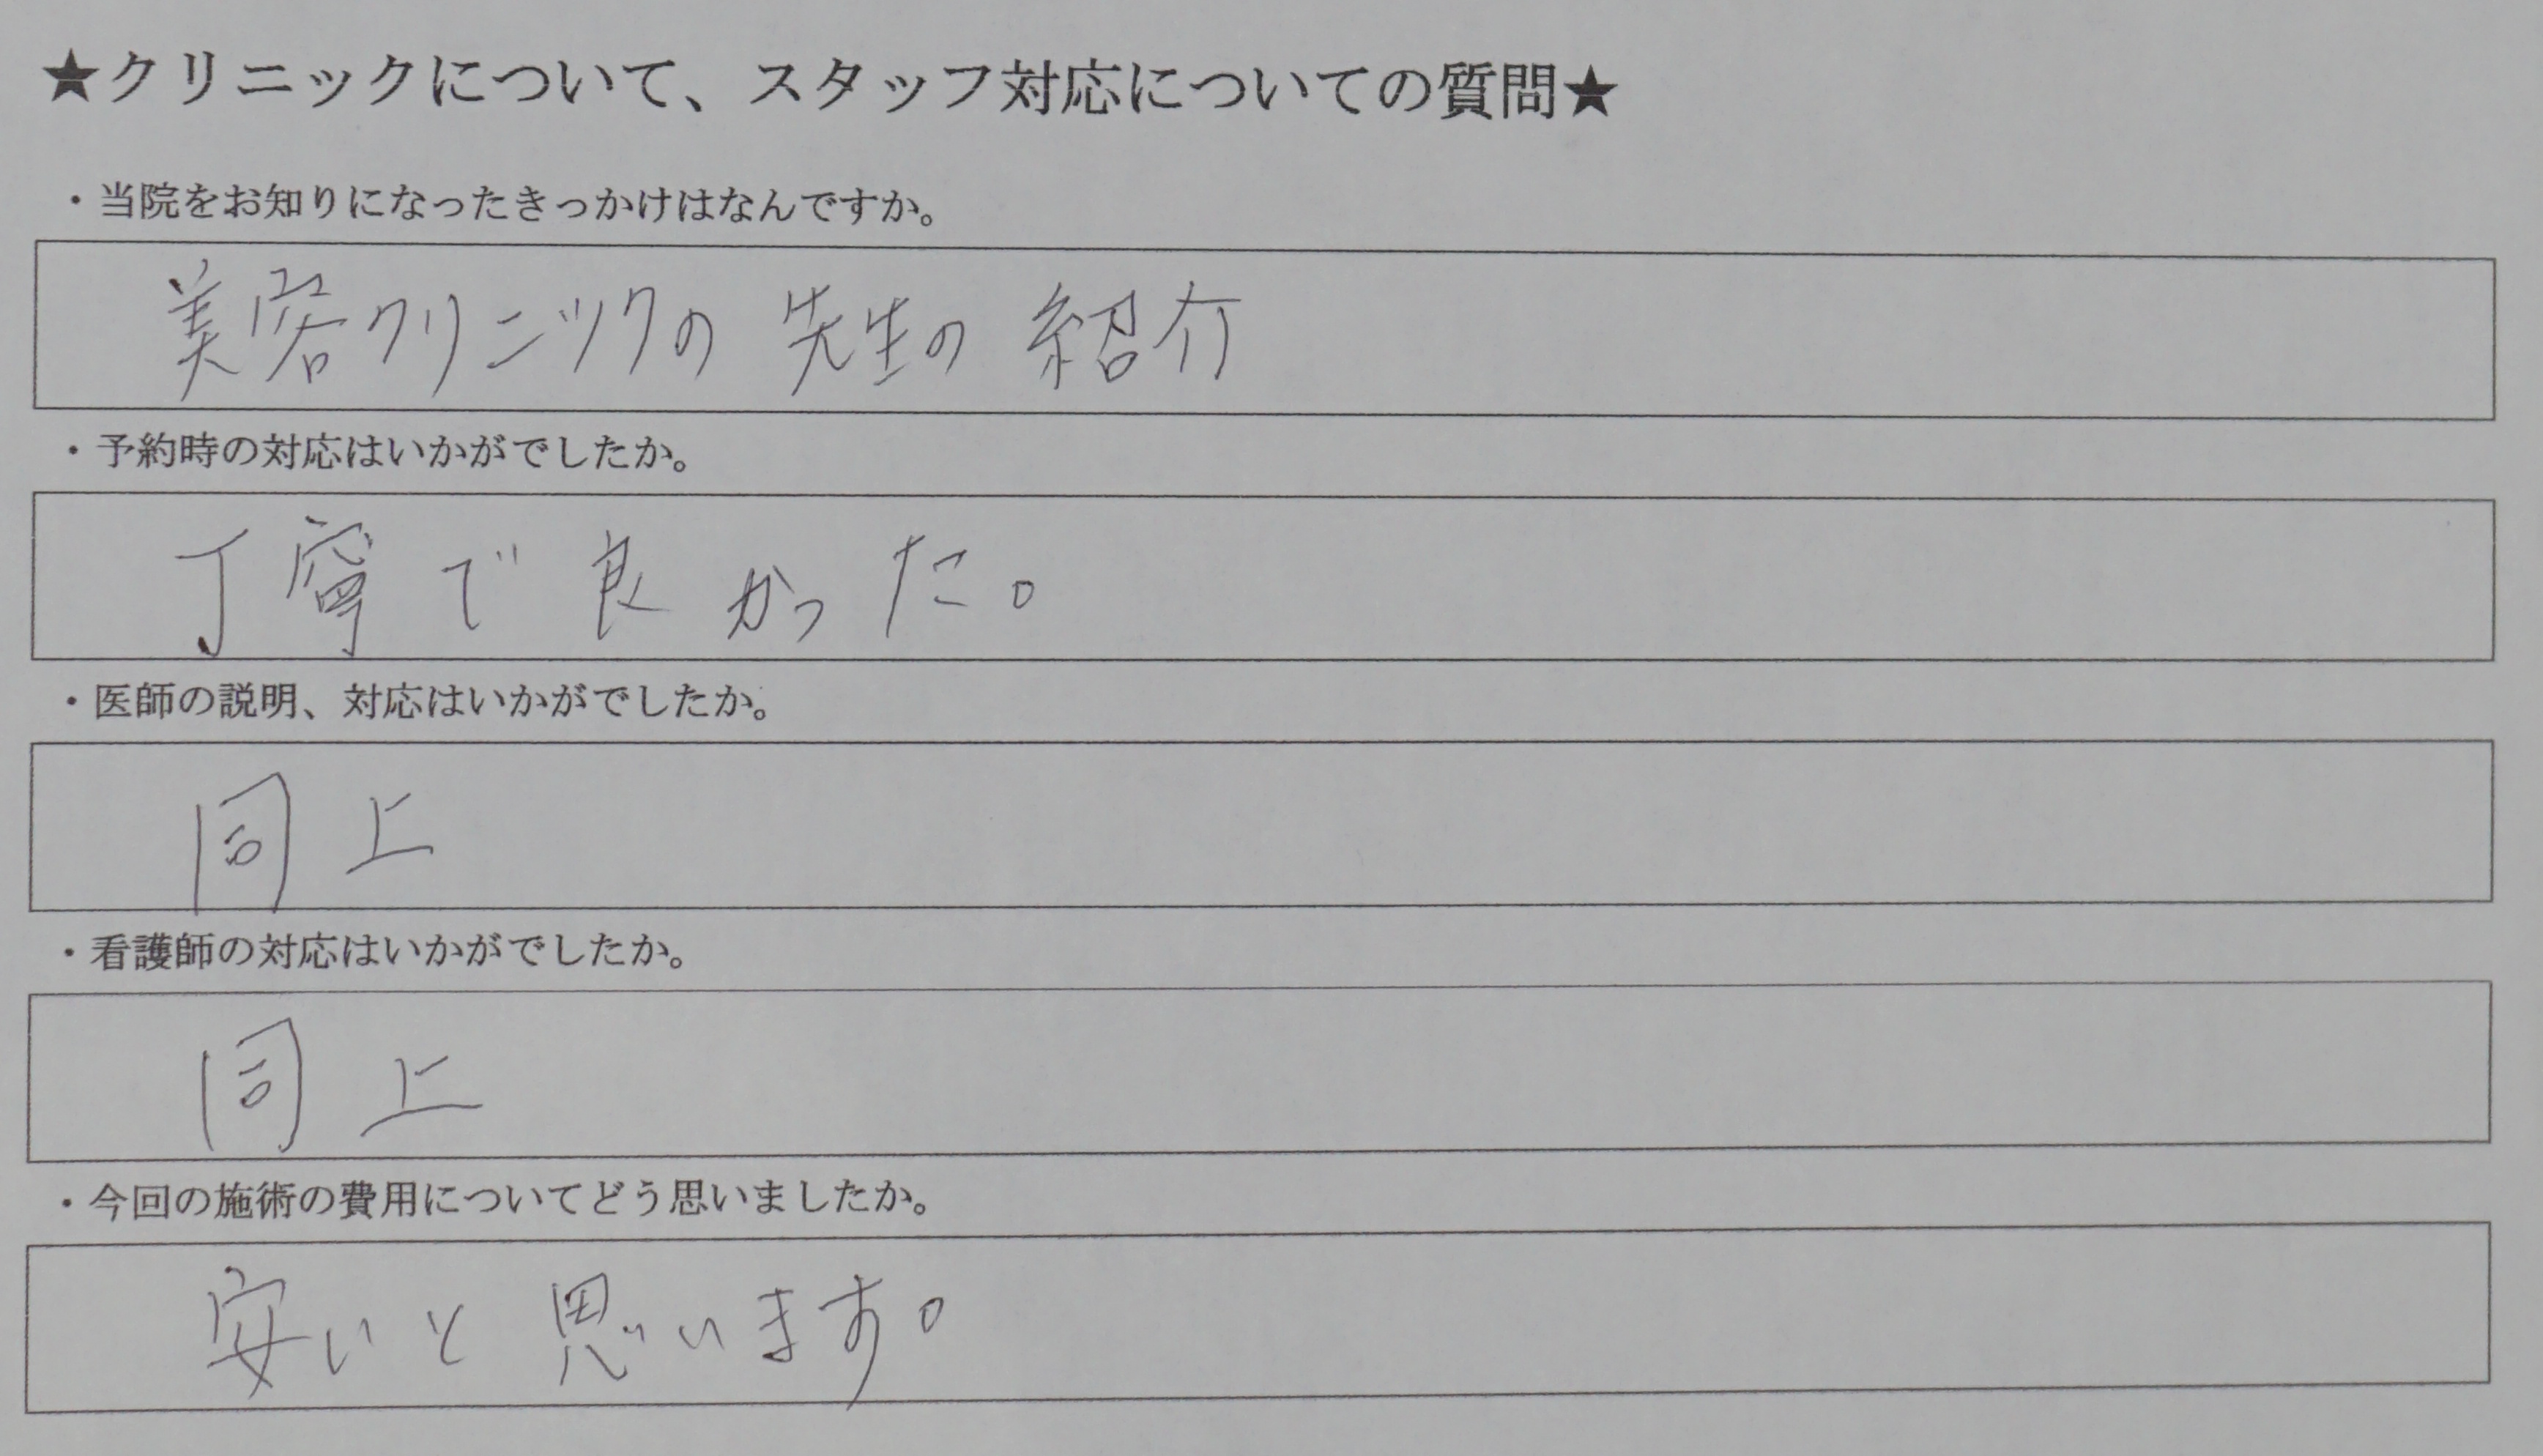 ★クリニックについて、スタッフ対応についての質問★
・当院をお知りになったきっかけはなんですか。
美容クリニックの先生の紹介
・予約時の対応はいかがでしたか。
丁寧で良かった。
・医師の説明、対応はいかがでしたか。
同上
・看護師の対応はいかがでしたか。
同上
・今回の施術の費用についてどう思いましたか。
安いと思います。